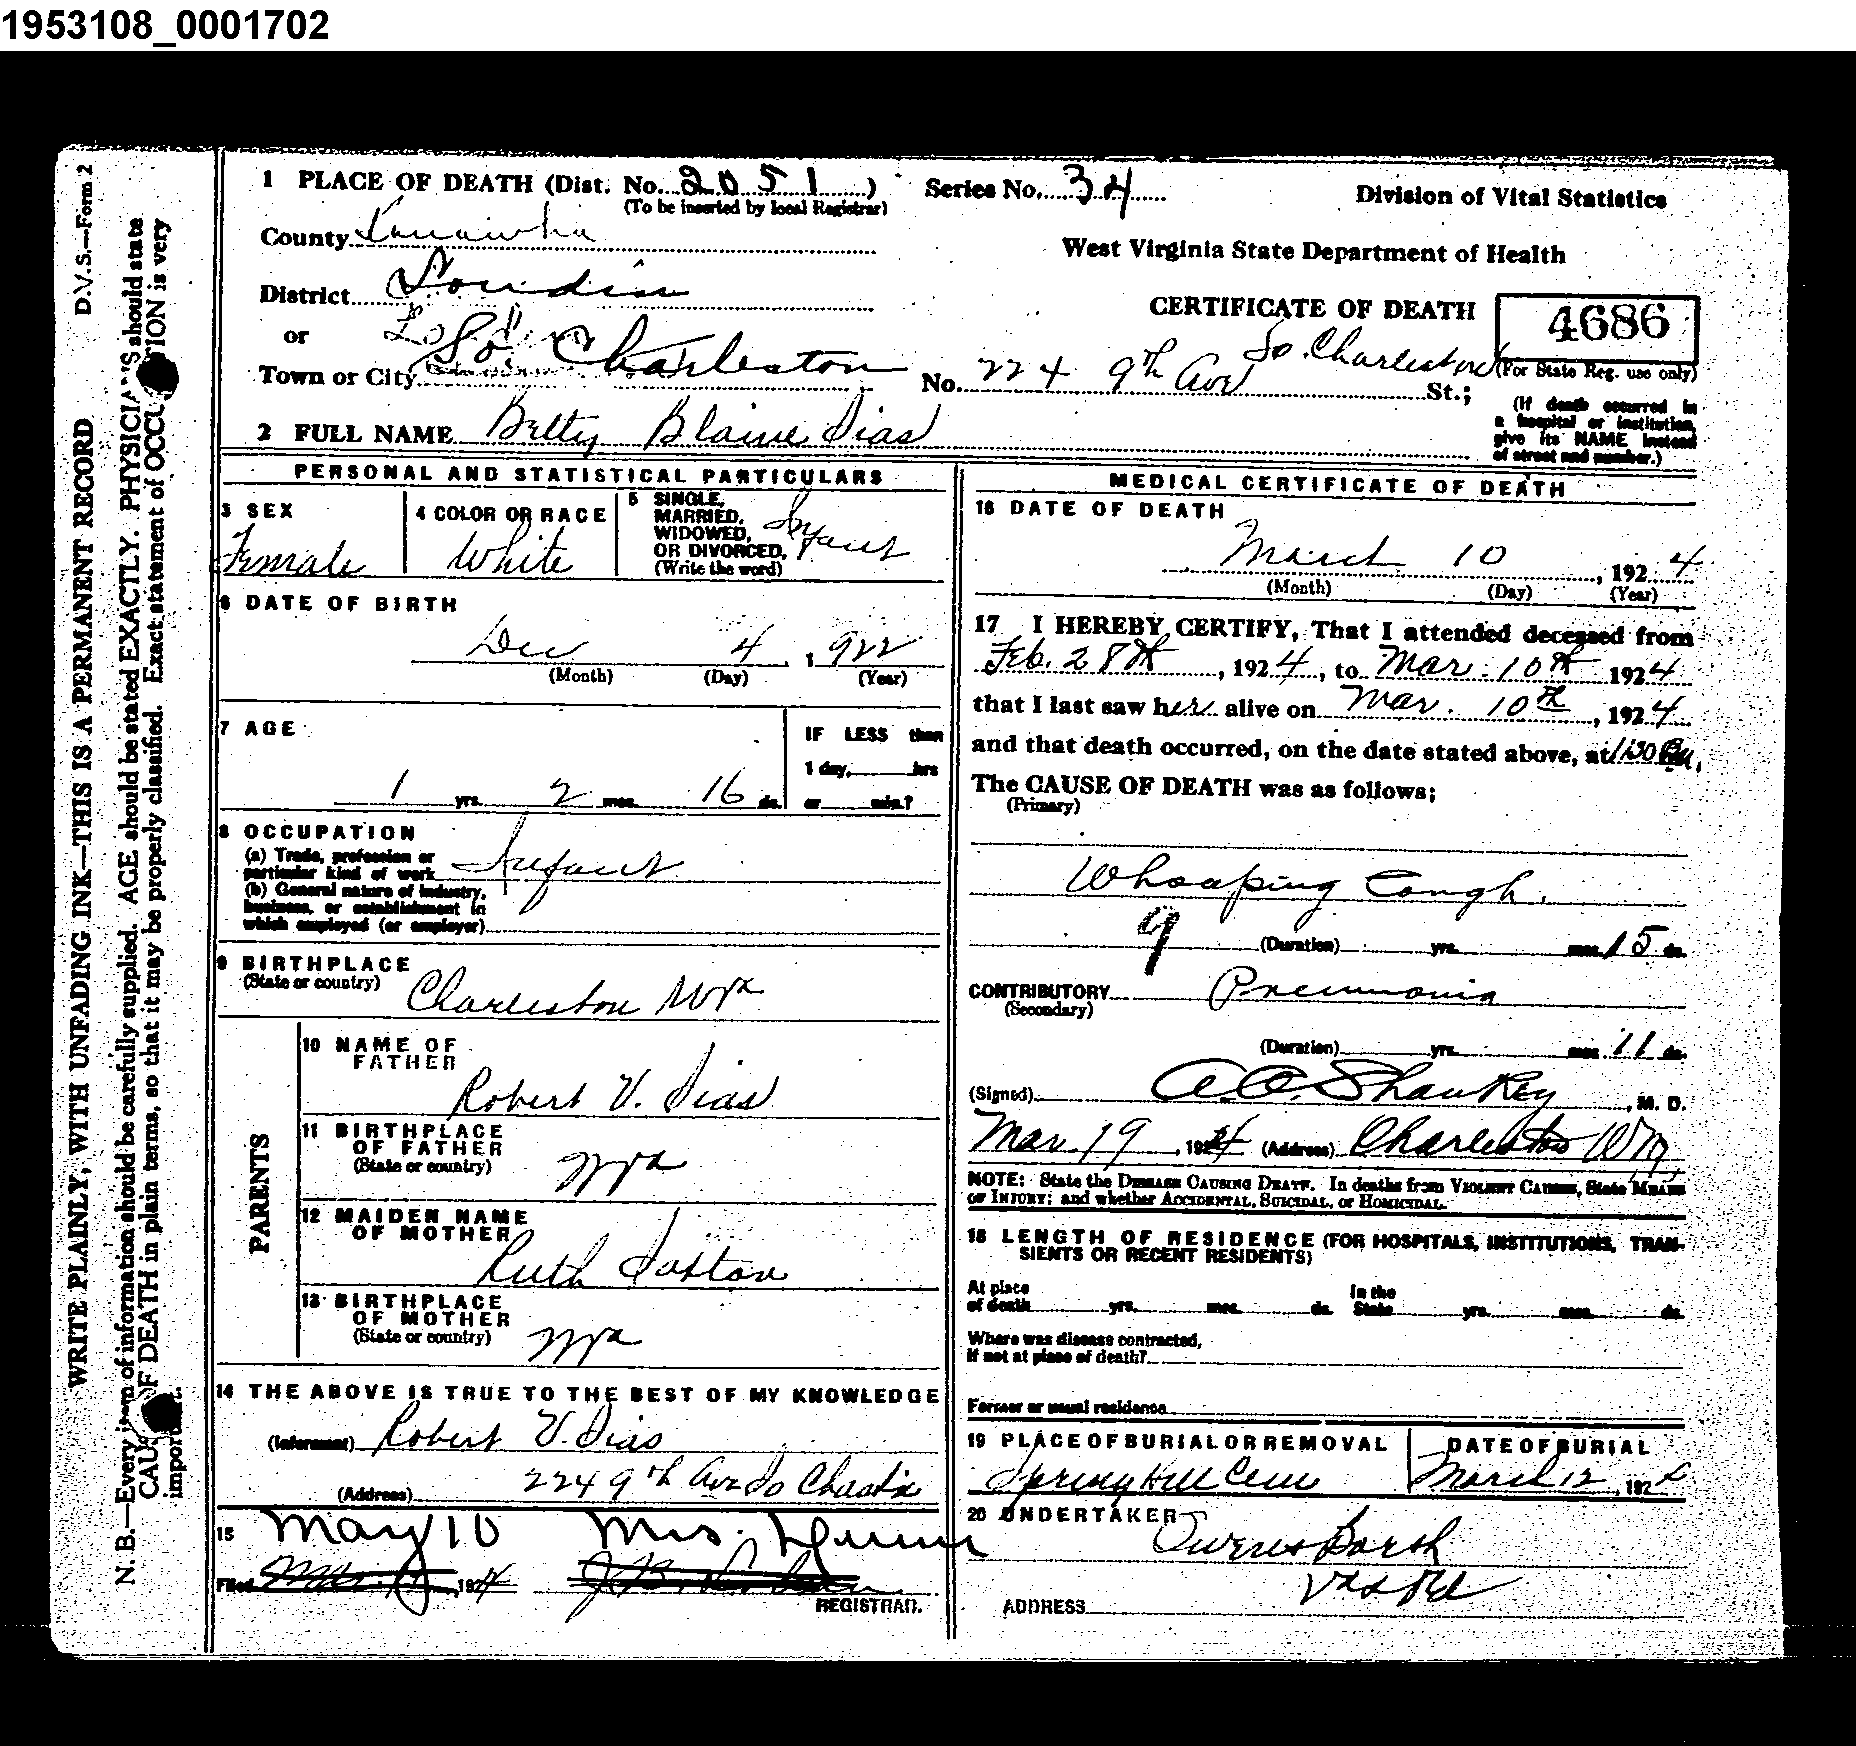 1953108_0001702
D.V.S.—Form 2
WRITE PLAINLY, WITH UNFADING INK—THIS IS A PERMANENT RECORD
N. B.—Every item of information should be carefully supplied. AGE should be stated EXACTLY. PHYSICIANS should state
CAUS OF DEATH in plain terms, so that it may be properly classified. Exact statement of OCCU TION is very
impor
1 PLACE OF DEATH (Dist. No. 2051 ) Series No. 34 Division of Vital Statistics
(To be inserted by local Registrar)
County Kanawha
West Virginia State Department of Health
District Loudin
CERTIFICATE OF DEATH 4686
or
Town or City So. Charleston No. 224 9th Ave So. Charleston St.; (For State Reg. use only)
(If death occurred in
a hospital or institution,
give its NAME instead
of street and number.)
2 FULL NAME Betty Blaine Dias
PERSONAL AND STATISTICAL PARTICULARS
3 SEX
Female
4 COLOR OR RACE
White
5 SINGLE,
MARRIED,
WIDOWED,
OR DIVORCED,
(Write the word)
Infant
6 DATE OF BIRTH
Dec 4, 1922
(Month) (Day) (Year)
7 AGE
1 yrs. 2 mos. 16 ds.
IF LESS than
1 day, hrs
or min.?
8 OCCUPATION
(a) Trade, profession or
particular kind of work Infant
(b) General nature of industry,
business, or establishment in
which employed (or employer)
9 BIRTHPLACE
(State or country) Charleston WVa
PARENTS
10 NAME OF
FATHER
Robert V. Dias
11 BIRTHPLACE
OF FATHER
(State or country) WVa
12 MAIDEN NAME
OF MOTHER
Ruth
13 BIRTHPLACE
OF MOTHER
(State or country) WVa
14 THE ABOVE IS TRUE TO THE BEST OF MY KNOWLEDGE
(Informant) Robert V. Dias
(Address) 224 9th Ave So
15 May 10 Mrs. Dunn
Filed 1924
REGISTRAR.
MEDICAL CERTIFICATE OF DEATH
16 DATE OF DEATH
March 10, 1924
(Month) (Day) (Year)
17 I HEREBY CERTIFY, That I attended deceased from
Feb. 28th, 1924, to Mar. 10th 1924
that I last saw her alive on Mar. 10th, 1924
and that death occurred, on the date stated above, at 1:30 P.M.
The CAUSE OF DEATH was as follows;
(Primary)
Whooping Cough.
9 (Duration) yrs. mos. 15 ds.
CONTRIBUTORY Pneumonia
(Secondary)
(Duration) yrs. mos. 11 ds.
(Signed) A.A. Shawkey, M. D.
Mar. 19, 1924 (Address) Charleston W Va
NOTE: State the DISEASE CAUSING DEATH. In deaths from VIOLENT CAUSES, State MEANS
OF INJURY; and whether ACCIDENTAL, SUICIDAL, or HOMICIDAL.
18 LENGTH OF RESIDENCE (FOR HOSPITALS, INSTITUTIONS, TRAN-
SIENTS OR RECENT RESIDENTS)
At place In the
of death yrs. mos. ds. State yrs. mos. ds.
Where was disease contracted,
if not at place of death?
Former or usual residence
19 PLACE OF BURIAL OR REMOVAL
Spring Hill Cem
DATE OF BURIAL
March 12, 1924
20 UNDERTAKER
ADDRESS